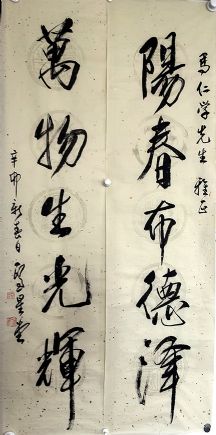 馬仁学先生雅正
陽春布德澤
萬物生光輝
辛卯新春日